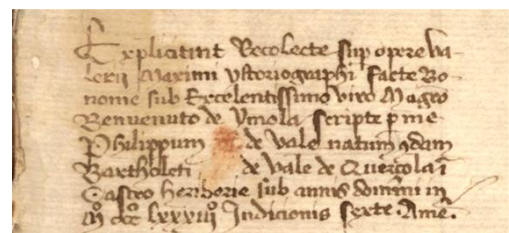 Explicitint Recolecte sup opere va-
lerii Maximi ystoriographi facte Bo-
nonie sub Excelentissimo viro Magro
Benvenuto de ymola scripte p me
Philippum de vale natum qdam
Bartholeti de vale de Quercola i
Castro heriberie sub annis domini m
Mo ccco lxxxiiio Indicionis sexte. Ame.